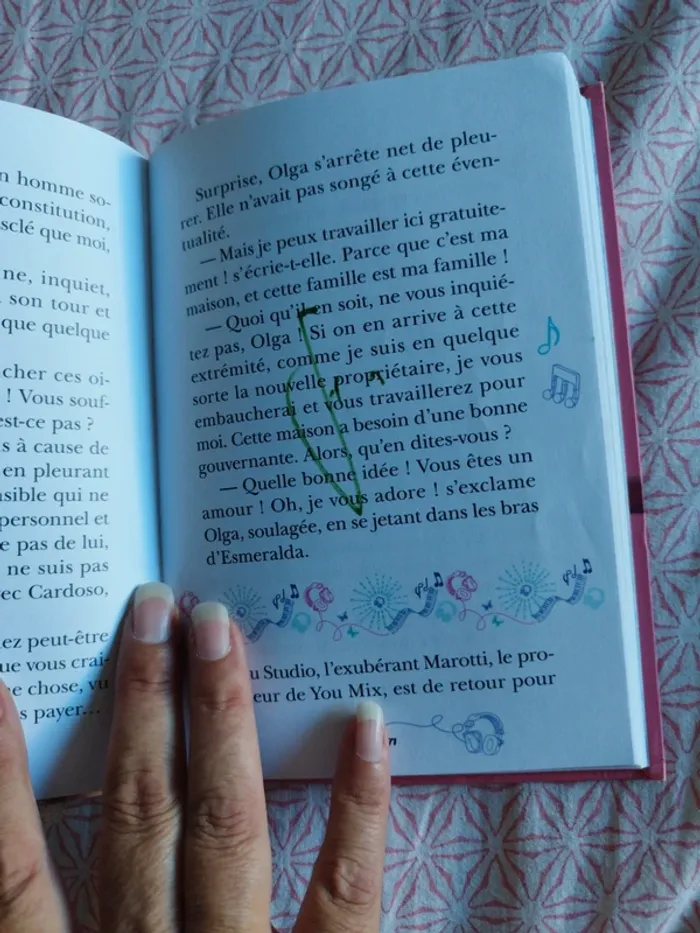 n homme so-
constitution,
sclé que moi,
ne, inquiet,
son tour et
que quelque
cher ces oi-
! Vous souf-
est-ce pas ?
s à cause de
en pleurant
sible qui ne
personnel et
e pas de lui,
ne suis pas
ec Cardoso,
ez peut-être
ue vous crai-
e chose, vu
s payer...
Surprise, Olga s'arrête net de pleu-
rer. Elle n'avait pas songé à cette éven-
tualité.
— Mais je peux travailler ici gratuite-
ment ! s'écrie-t-elle. Parce que c'est ma
maison, et cette famille est ma famille !
— Quoi qu'il en soit, ne vous inquié-
tez pas, Olga ! Si on en arrive à cette
extrémité, comme je suis en quelque
sorte la nouvelle propriétaire, je vous
embaucherai et vous travaillerez pour
moi. Cette maison a besoin d'une bonne
gouvernante. Alors, qu'en dites-vous ?
— Quelle bonne idée ! Vous êtes un
amour ! Oh, je vous adore ! s'exclame
Olga, soulagée, en se jetant dans les bras
d'Esmeralda.
u Studio, l'exubérant Marotti, le pro-
eur de You Mix, est de retour pour
n